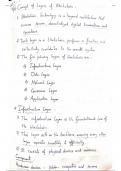 Concept of Layers of Blockchain :
① Blockchain technology is a layered architecture that
ensures secure, decentralized digital transactions and
operations
② Each layer in a blockchain performs a function and
collectively contributes to the overall system
③ The five primary layers of blockchain are :
① Infrastructure Layer
② Data Layer
③ Network Layer
④ Consensus Layer
⑤ Application Layer
Infrastructure Layer
① The infrastructure Layer is the foundational layer of
the blockchain
② This layer acts as the backbone ensuring every other
layer operates smoothly & efficiently
③ It consists of physical devices and resources
Component
Hardware devices : computers and servers